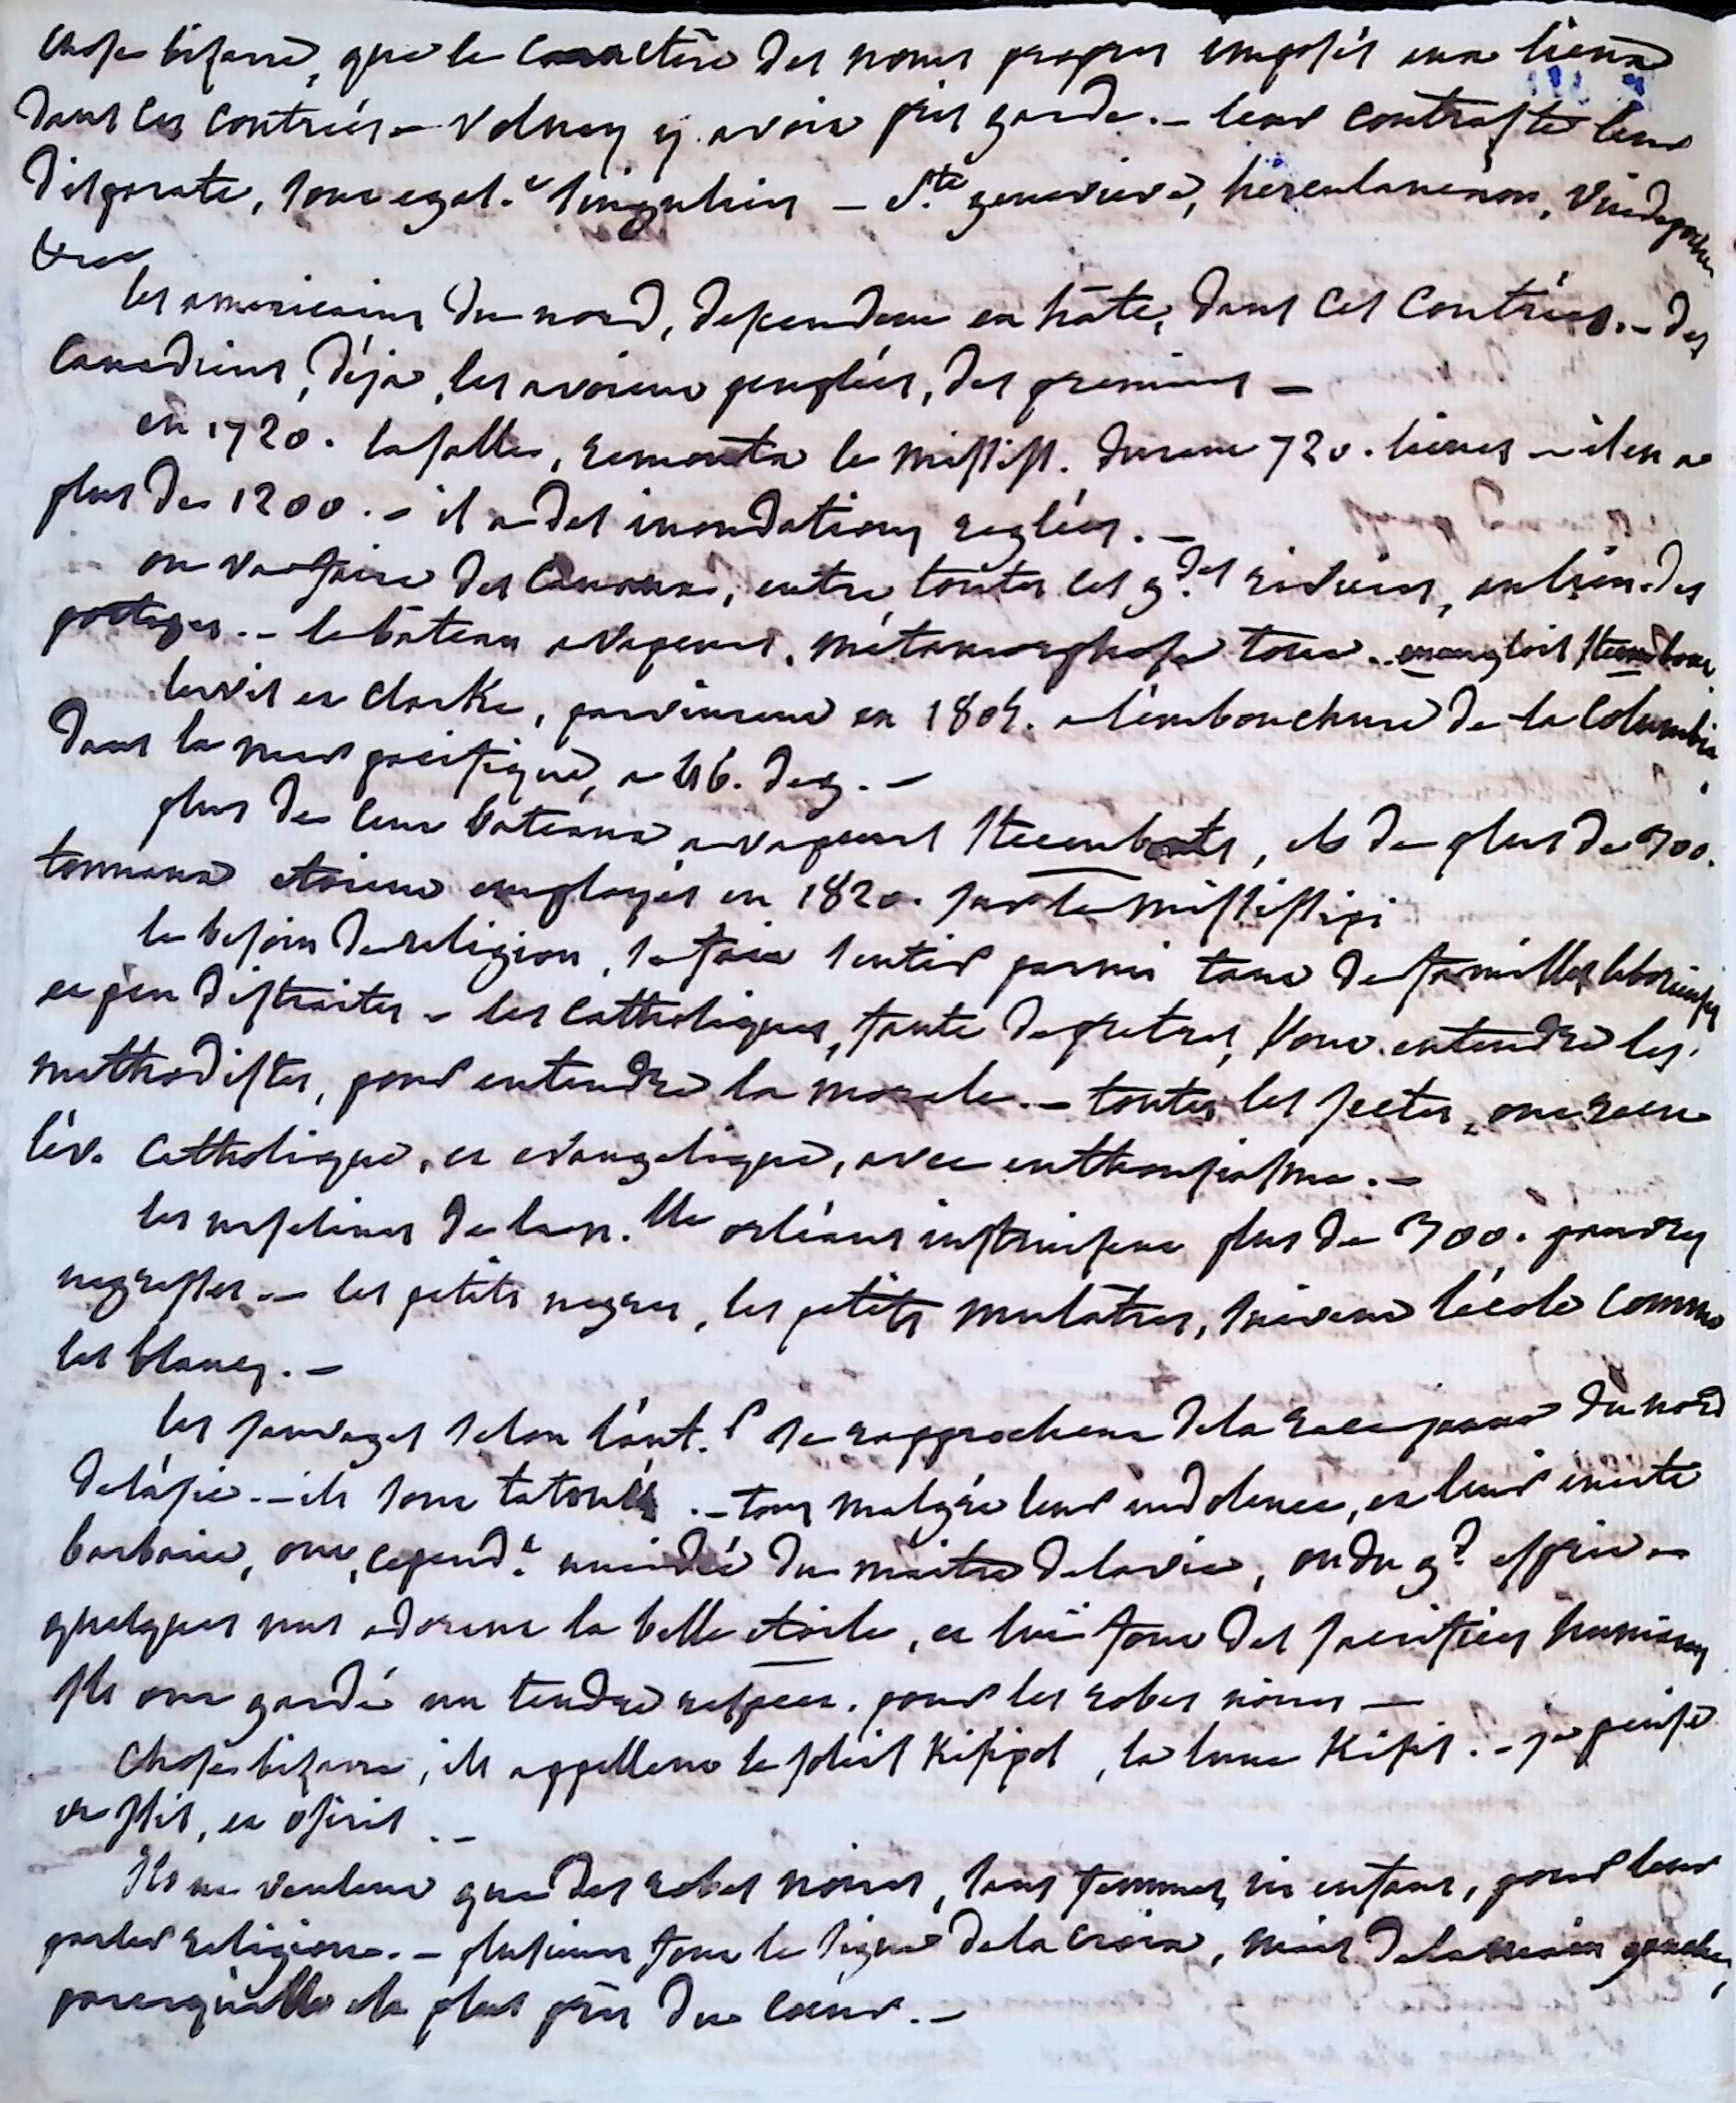 chose bizarre, que le caractère des noms propres imposés aux lieux
dans ces contrées – Volney y avoit pris garde. – leur contraste leur
disparate, sont egal.t singuliers – S.te genevieve, herculaneum, Vind
&c
les americains du nord, dependent en hâte, dans ces contrées. – des
Canadiens, déja, les avoient peuplées, des premiers –
en 1720. lasalle, remonta le mississ. durant 720. lieues – il en a
plus de 1200. – il a des inondations reglées. –
on va faire des canaux, entre toutes ces g.des rivieres, au lieu des
portages. – le bateau a vapeur, métamorphose tout. en anglois steamboat
lewis et clarke, parvinrent en 1805. a l'embouchure de la Columbia,
dans la mer pacifique, a 46. deg. –
plus de cent bateaux a vapeurs steemboats, et de plus de 500.
tonneaux etoient employés en 1820. sur le mississipi
le besoin de religion, se fait sentir parmi tant de familles laborieuses
et peu distraites – les catholiques, faute de pretres, vont entendre les
methodistes, pour entendre la morale. – toutes les sectes, ont reçu
l'ev. catholique, et evangelique, avec enthousiasme. –
les ursulines de la n.lle orléans instruisent plus de 300. pauvres
negresses. – les petits negres, les petits mulâtres, suivent l'école comme
les blancs. –
les sauvages selon l'aut.r se rapprochent de la race jaune du nord
de l'asie. – ils sont tatoués. – tous malgré leur indolence, et leur
barbarie, ont, cepend.t une idée du maitre de la vie, ou du g.d esprit –
quelques uns adorent la belle etoile, et lui font des sacrifices humains
Ils ont gardé un tendre respect, pour les robes noires –
Chose bizarre, ils appellent le soleil Kisipol, la lune Kisis. – je pense
a Isis, et osiris. –
Ils ne veulent que des robes noires, sans femmes, ni enfans, pour leur
parler religion. – plusieurs font le signe de la croix, mais de la main gauche,
parcequ'elle est plus près du coeur. –